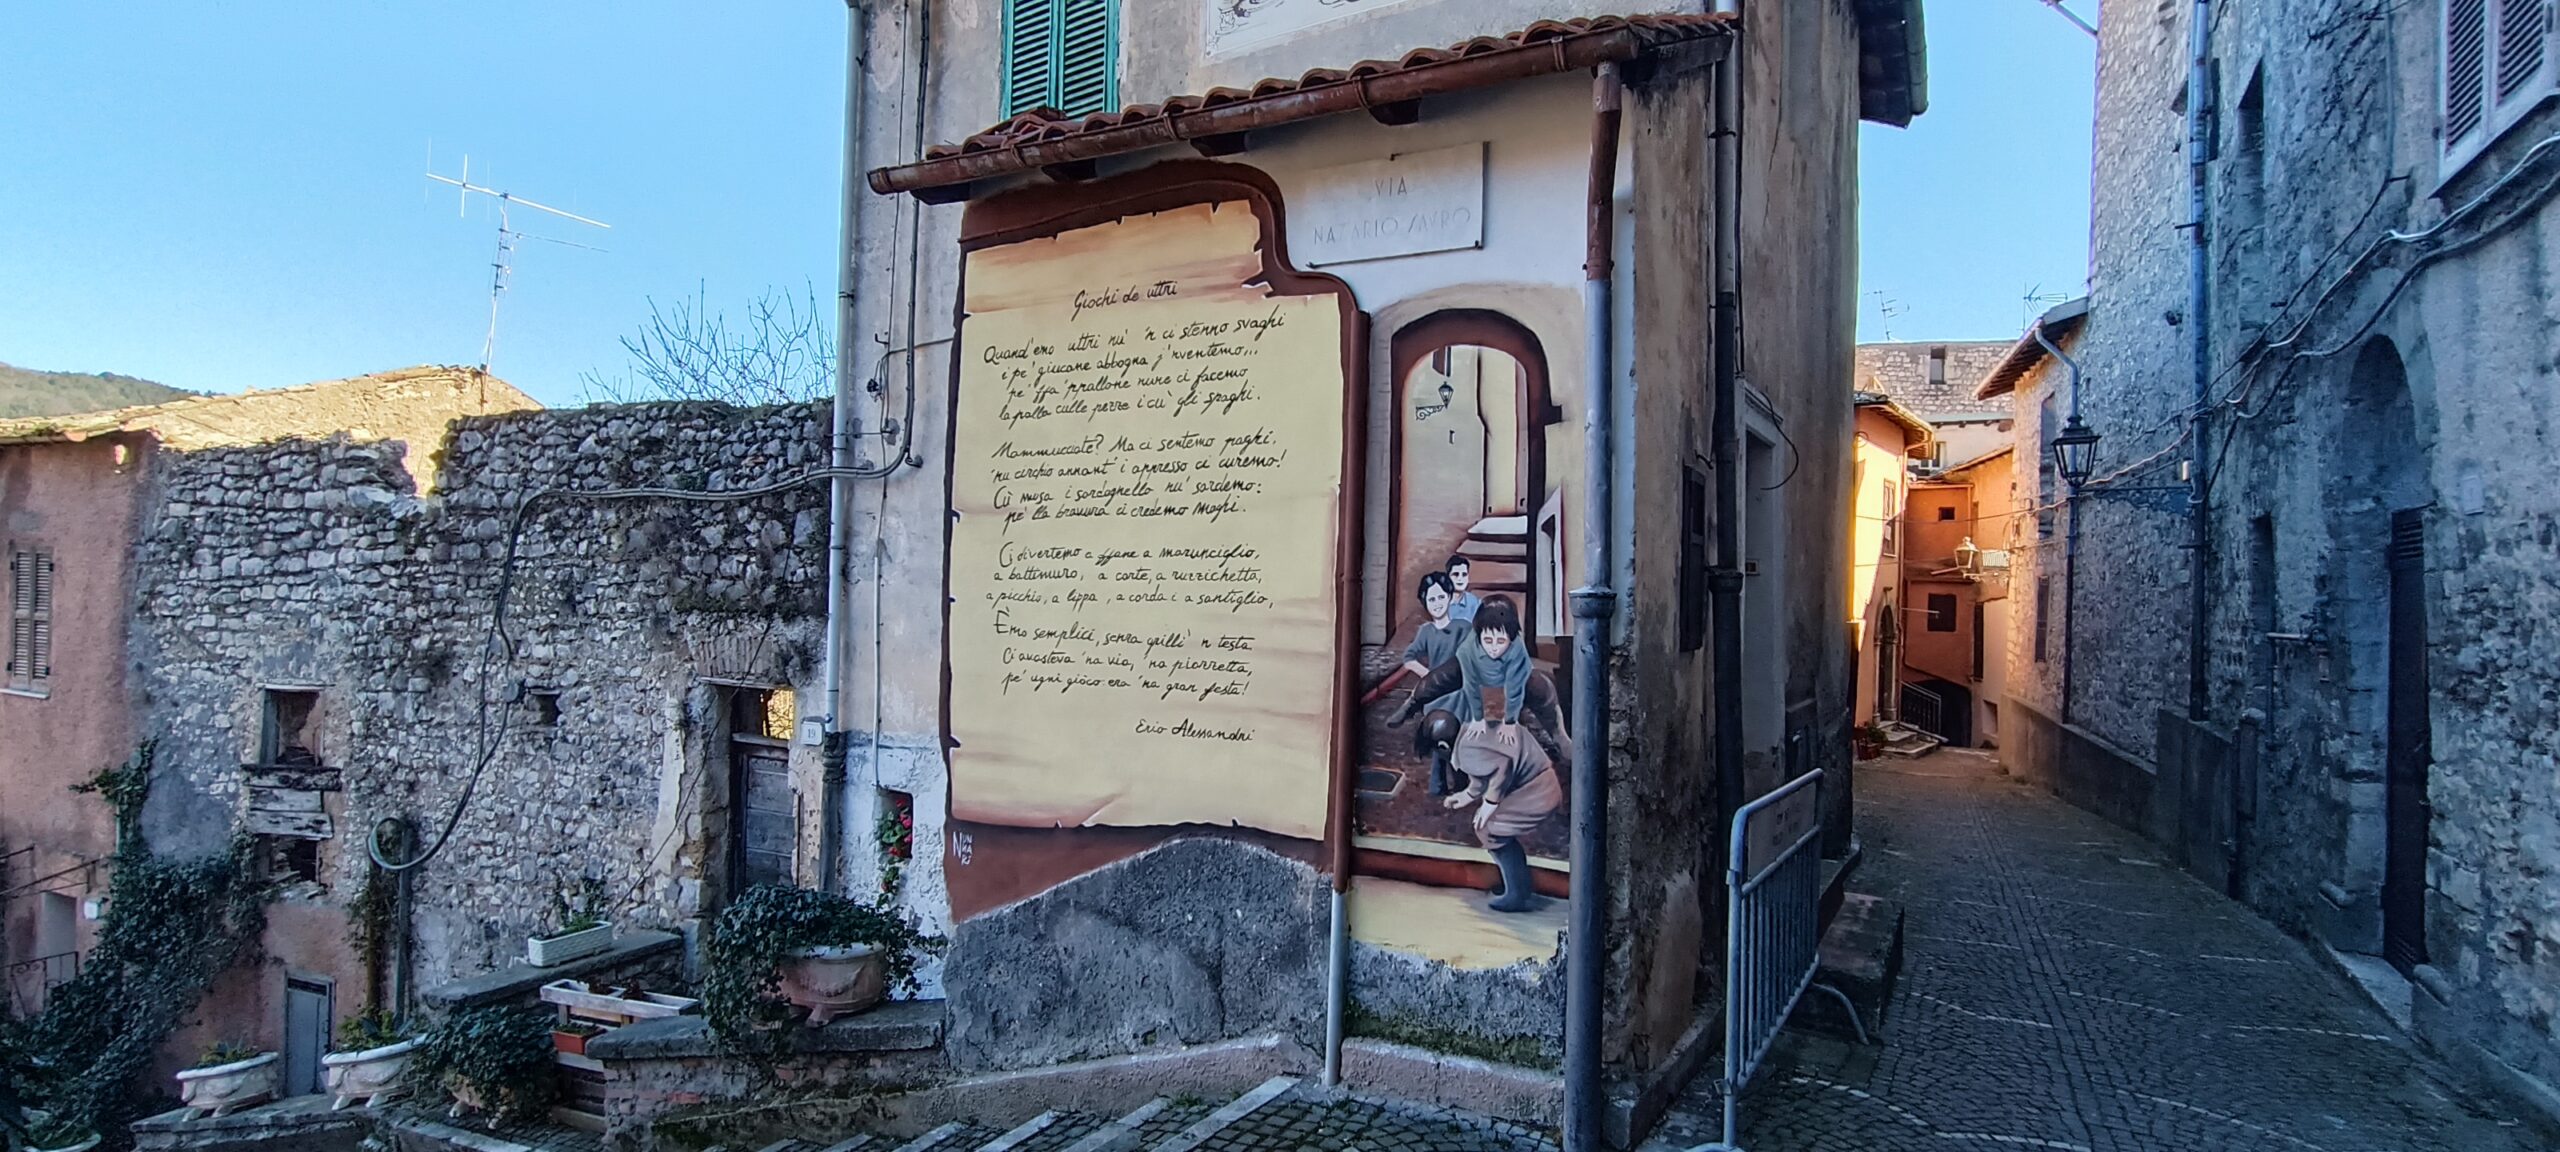 VIA
NAZARIO SAVRO
Giochi de uttri
Quand'emo uttri nu' 'n ci stenno svaghi
i pe' giucane abbogna j'nventemo...
pe' ffa 'pprallone nune ci facemo
la palla culle pezze i cu' gli spaghi.
Mammucciate? Ma ci sentemo paghi,
'nu circhio annant' i appresso ci curemo!
Cu musa i sordagnello nu' sordemo:
pe' lla bravura ci credemo maghi.
Ci divertemo a ffane a marunciglio,
a battimuro, a corte, a ruzzichetta,
a picchio, a lippa, a corda i a santiglio,
Èmo semplici, senza grilli 'n testa
Ci avasteva 'na via, 'na piazzetta,
pe' ugni gioco era 'na gran festa!
Erio Alessandri
NUN
KA
RI
19